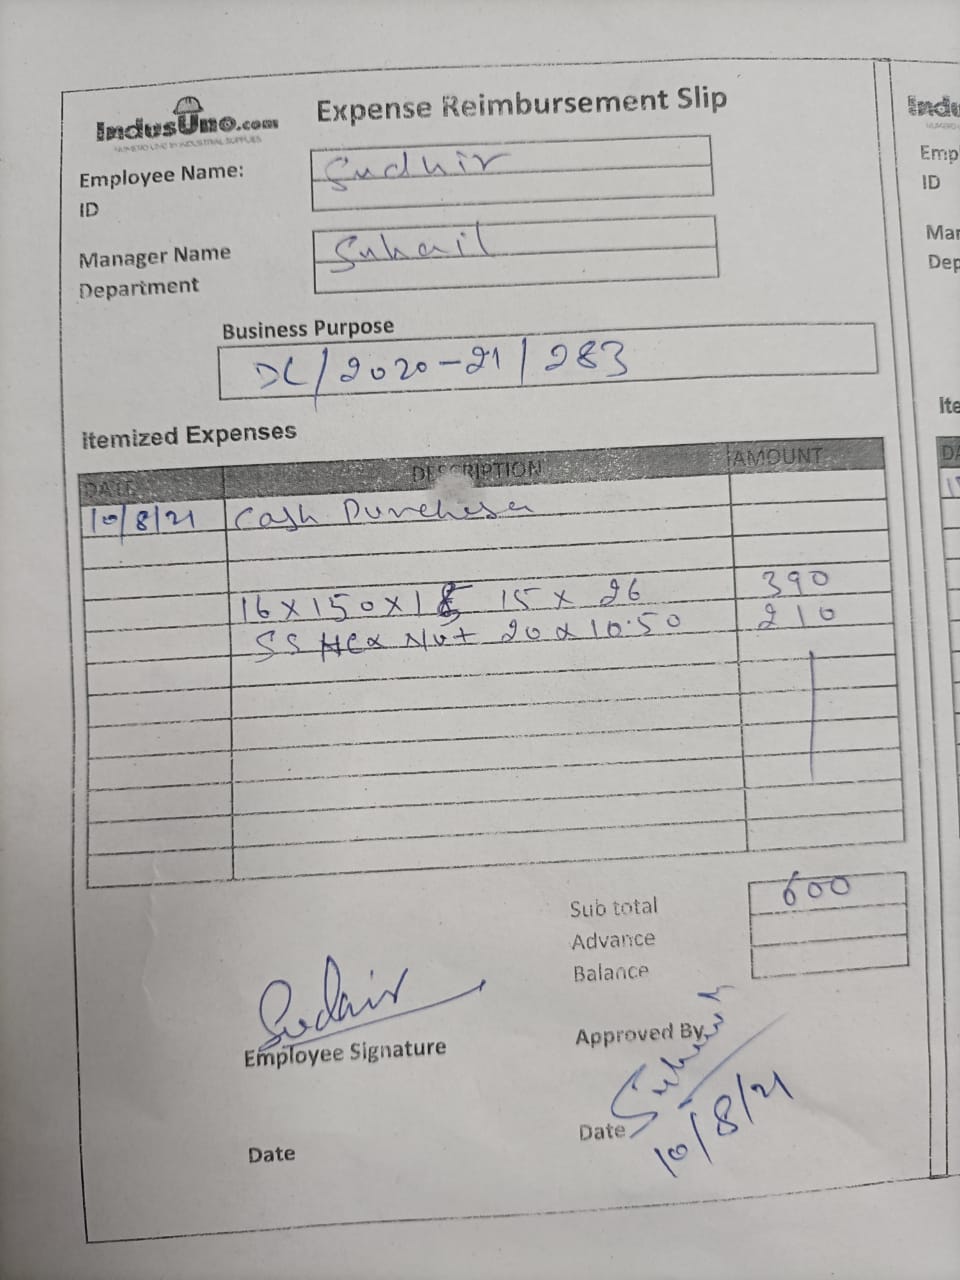 IndusUno.com
NUMERO UNO IN INDUSTRIAL SUPPLIES
Expense Reimbursement Slip
Employee Name: Sudhir
ID
Manager Name Suhail
Department
Business Purpose
DC/2020-21/283
Itemized Expenses
DATE DESCRIPTION AMOUNT
10/8/21 Cash Purchase
16 x 150 x 1 15 x 26 390
SS Hex Nut 20 x 10.50 210
Sub total 600
Advance
Balance
Sudhir
Employee Signature
Approved By
Date 10/8/21
Date
Indu
Emp
ID
Mar
Dep
Ite
DA